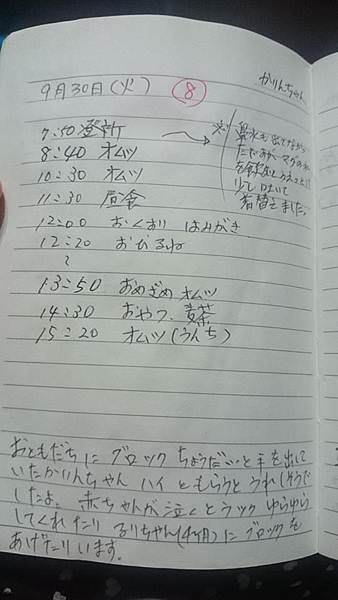 かりんちゃん
9月30日(火) ⑧
7:50 登所
8:40 オムツ
10:30 オムツ
11:30 昼食
12:00 おくすり はみがき
12:20 おひるね
〜
13:50 おめざめ オムツ
14:30 おやつ、麦茶
15:20 オムツ(うんち)
※鼻水も出てながら
マグの
少し吐いて
着替えました。
おともだちに ブロック ちょうだいと手を出して
いたかりんちゃん ハイ ともらうと うれしそうで
したよ。赤ちゃんが泣くと ラック ゆらゆら
してくれたり るりちゃん(4ヶ月)に ブロックを
あげたり います。